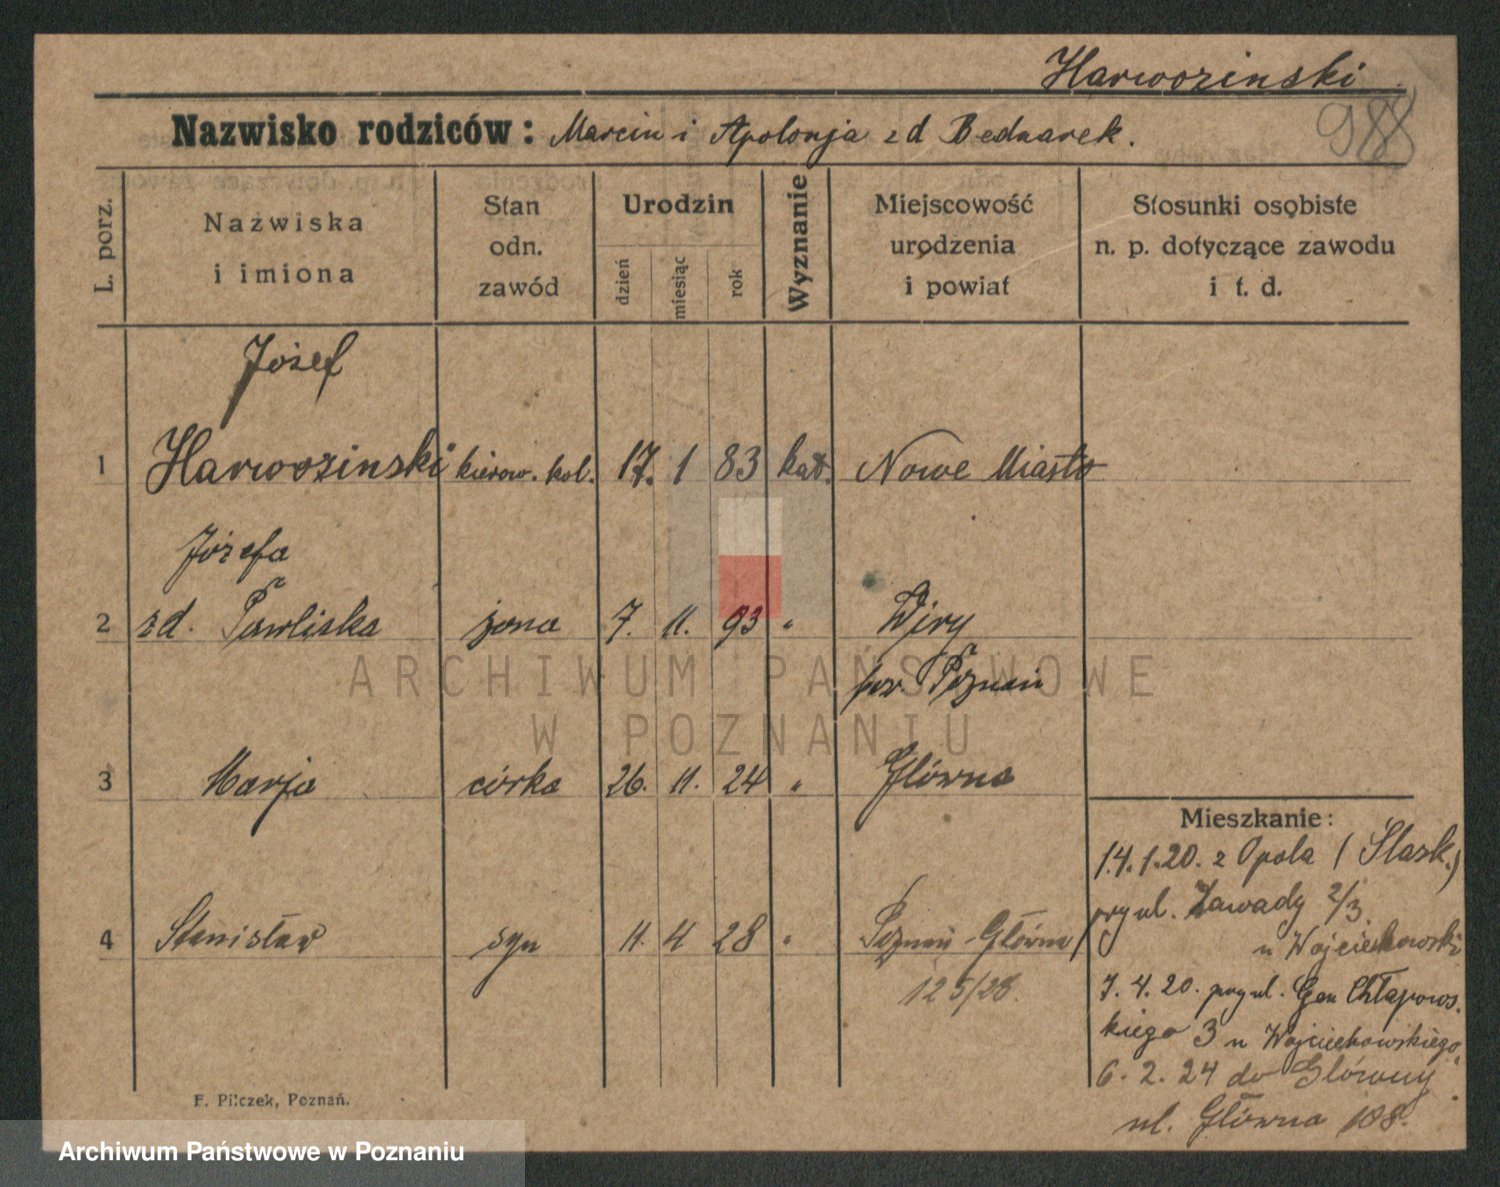 Harwozinski
988
Nazwisko rodziców: Marcin i Apolonja zd Bednarek.
L. porz.
Nazwiska i imiona
Stan odn. zawód
Urodzin
dzień
miesiąc
rok
Wyznanie
Miejscowość urodzenia i powiat
Stosunki osobiste n. p. dotyczące zawodu i t. d.
Józef
1 Harwozinski kierow. kol. 17. 1 83 kat. Nowe Miasto
Józefa
2 zd. Pawliska żona 7. 11. 93 " Wiry
pow. Poznań
3 Marja córka 26. 11. 24 " Główna
4 Stanisław syn 11. 4 28 " Poznań-Główna
125/28.
Mieszkanie:
14.1.20. z Opola (Śląsk.)
przy ul. Zawady 2/3
u Wojciechowski
7. 4. 20. przy ul. Gen Chłapows.
kiego 3 u Wojciechowskiego
6. 2. 24 do Główny
ul. Główna 108.
F. Pilczek, Poznań.
ARCHIWUM PAŃSTWOWE
W POZNANIU
Archiwum Państwowe w Poznaniu